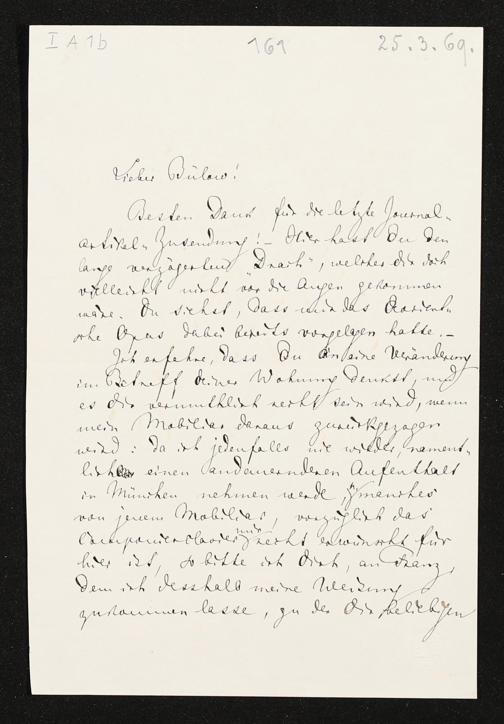 I A 1b 161 25.3.69.
Lieber Bülow!
Besten Dank für die letzte Journal-
artikel-Zusendung! – Hier hast Du den
lange verzögerten „Druck“, welcher Dir doch
vielleicht nicht vor die Augen gekommen
wäre. Du siehst, dass mir das
Opus dabei bereits vorgelegen hatte. –
Ich erfahre, dass Du an eine Veränderung
im Betreff deiner Wohnung denkst, und
es Dir vermuthlich recht sein wird, wenn
mein Mobiliar daraus zurückgezogen
wird: da ich jedenfalls nie wieder, nament-
lich einen andauernderen Aufenthalt
in München nehmen werde, manches
von jenem Mobiliar, vorzüglich das
Componierclavier mir recht erwünscht für
hier ist, so bitte ich Dich, an Franz,
dem ich desshalb meine Weisung
zukommen lasse, zu der Dir beliebigen